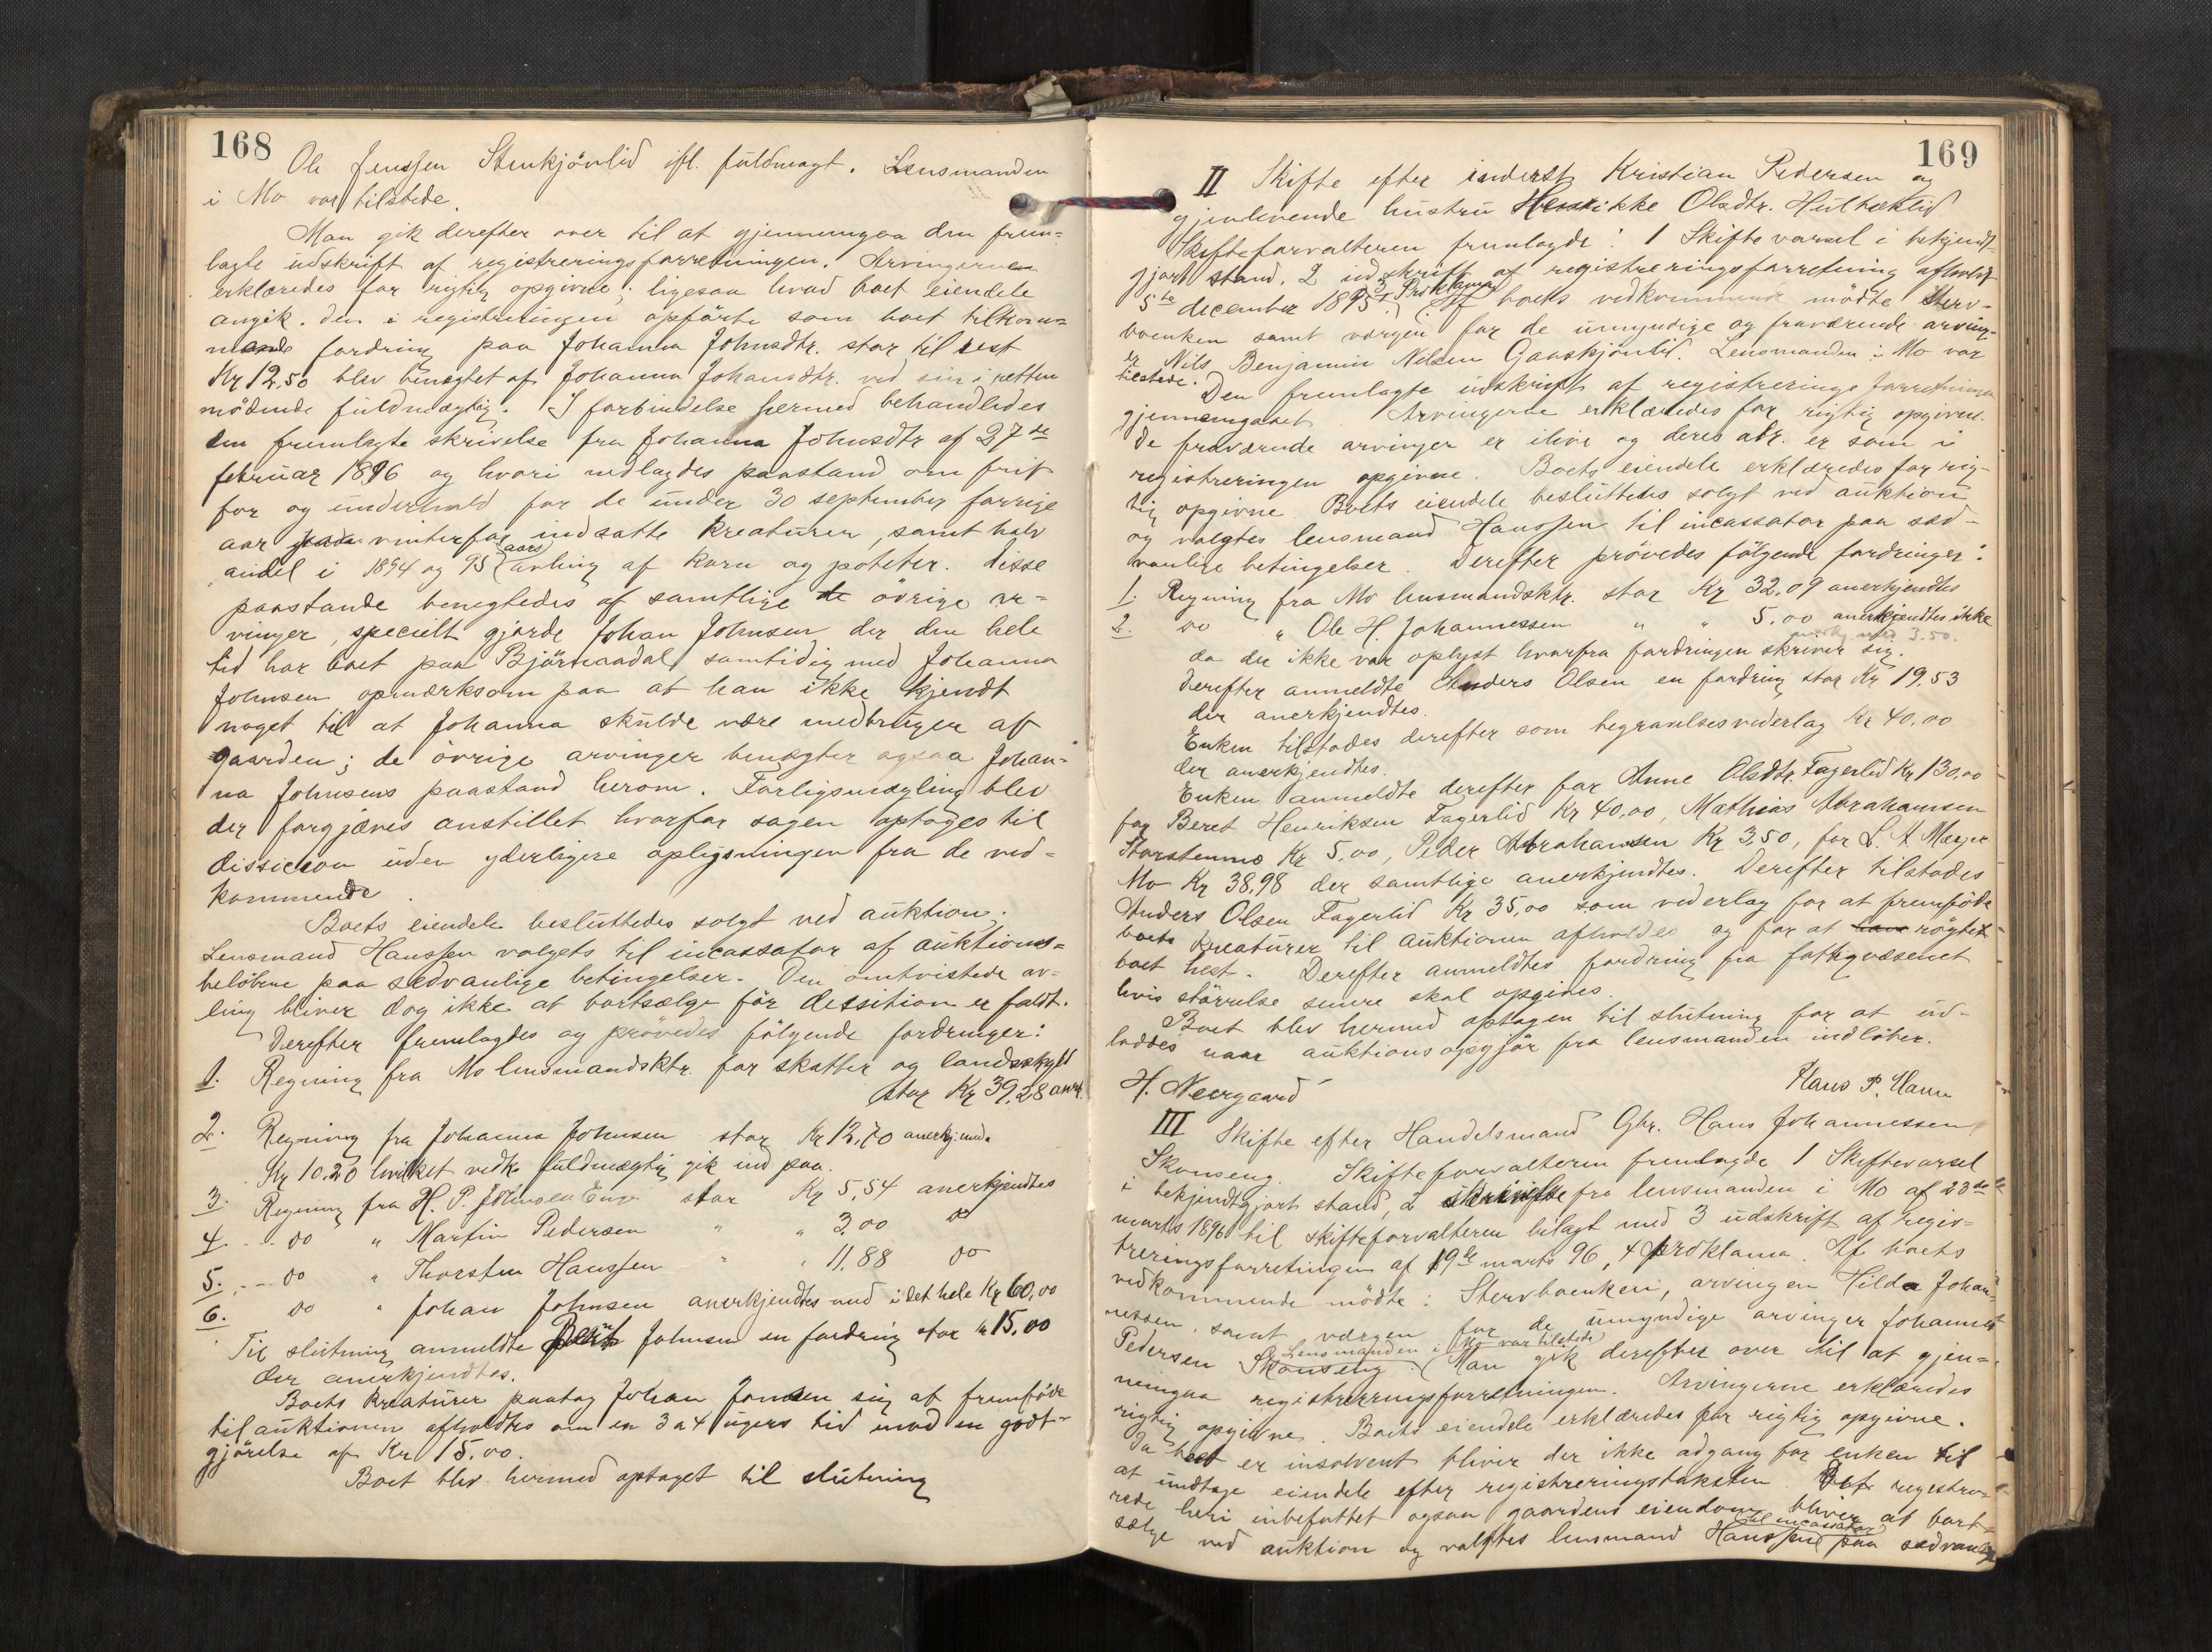 168
Ole Jenssen Stenkjönlid ifl. fuldmagt. Lensmanden
i Mo var tilstede.
Man gik derefter over til at gjennemgaa den frem-
lagte udskrift af registreringsforretningen. Arvingerne
erklæredes for rigtig opgivne; ligesaa hvad boet eiendele
angik. Den i registreringen opförte som boet tilkom-
mende fordring paa Johanna Johnsdtr. stor til rest
Kr 12.50 blev benegtet af Johanna Johansdtr. ved sin i retten
mödende fuldmægtig. I forbindelse hermed behandledes
en fremlagte skrivelse fra Johanna Johnsdtr af 27de
februar 1896 og hvori nedlagdes paastand om frit
for og underhold for de under 30 september forrige
aar vinterfor indsatte kreaturer, samt halv
andel i 1894 og 95 aars avling af korn og poteter. Disse
paastande benegtedes af samtlige de övrige ar-
vinger, specielt gjorde Johan Johnsen der den hele
tid har boet paa Björnaadal samtidig med Johanna
Johnsen opmærksom paa at han ikke kjendt
noget til at Johanna skulde være medbruger af
gaarden; de övrige arvinger benægter ogsaa Johan-
na Johnsens paastand herom. Forligsmægling blev
der forgjæves anstillet hvorfor sagen optoges til
dissision uden yderligere oplysninger fra de ved-
kommende.
Boets eiendele besluttedes solgt ved auktion;
Lensmand Hanssen valgets til incassator af auktions-
belöbene paa sædvanlige betingelser. Den omtvistede av-
ling bliver dog ikke at bortsælge för dessition er faldt.
Derefter fremlagdes og prövedes fölgende fordringer:
1. Regning fra Mo lensmandsktr. for skatter og landsskyld
stor Kr 39,28 anerk.
2. Regning fra Johanna Johnsen stor Kr 12,70 anerkjend.
Kr 10.20 hvilket vedk. fuldmægtig gik ind paa.
3. Regning fra H. P. Johnsen Enge stor Kr 5,54 anerkjendtes
4. - - do " Martin Pedersen " " 3,00 do
5. - - do " Thorsten Hanssen " " 11.88 do
6. do " Johan Johnsen anerkjendtes med i det hele Kr 60,00
Til slutning anmeldte Berit Johnsen en fordring stor kr 15,00
der anerkjendtes.
Boets kreaturer paatog Johan Jonsen sig at fremföde
til auktionen afholdtes om en 3 a 4 ugers tid mod en godt-
gjörelse af Kr 15.00.
Boet blev hermed optaget til slutning
169
II Skifte efter inderst Kristian Pedersen og
gjenlevende hustru Henrikke Olsdtr. Hulbæklid
Skifteforvalteren fremlagde: 1 Skiftevarsel i bekjendt-
gjort stand. 2 udskrift af registreringsforretning afholdt
5te december 1895. 3 Proklama. Af boets vedkommende mödte Sterv-
boenken samt værgen for de umyndige og fraværende arving-
er Nils Benjamin Nilsen Gaaskjönlid. Lensmanden i Mo var
tilstede.
Den fremlagte udskrift af registreringsforretningen
gjennemgaaet. Arvingerne erklæredes for rigtig opgivne.
De fraværende arvinger er ilive og deres adr. er som i
registreringen opgivne. Boets eiendele erklæredes for rig-
tig opgivne. Boets eiendele besluttedes solgt ved auktion
og valgtes lensmand Hanssen til incassator paa sæd-
vanlige betingelser. Derefter prövedes fölgende fordringer:
1. Regning fra Mo lensmandsktr. stor Kr 32,09 anerkjendtes
2. do " Ole H. Johannessen " " 5.00 anerkjendtes ikke
med 3.50.
da der ikke var oplyst hvorfra fordringen skriver sig.
Derefter anmeldte Anders Olsen en fordring stor Kr 19.53
der anerkjendtes.
Enken tilstodes derefter som begravelsesvederlag Kr 40.00
der anerkjendtes.
Enken anmeldte derefter for Anne Olsdtr. Fagerlid Kr 130,00
for Beret Henriksen Fagerlid Kr 40.00, Mathias Abrahamsen
Storstenmo Kr 5,00, Peder Abrahamsen Kr 3,50, for L. A. Meyer
Mo Kr 38,98 der samtlige anerkjendtes. Derefter tilstodes
Anders Olsen Fagerlid Kr 35,00 som vederlag for at fremföde
boets kreaturer til auktionen afholdes og for at have rögtet
boet hest. Derefter anmeldtes fordring fra fattigvæsenet
hvis störrelse senere skal opgives.
Boet blev hermed optagen til slutning for at ud-
loddes naar auktionsopgjör fra lensmanden indlöber.
H. Neergaard
Hans P. Hann
III Skifte efter Handelsmand Gbr. Hans Johannessen
Skonseng. Skifteforvalteren fremlagde 1 Skiftevarsel
i bekjendtgjort stand, 2 skrivelse fra lensmanden i Mo af 23de
marts 1896 til skifteforvalteren bilagt med 3 udskrift af regis-
treringsforretningen af 19de marts 96, 4 proklama. Af boets
vedkommende mödte: Stervboenken, arvingen Hilda Johan-
nessen, samt værgen for de umyndige arvinger Johannes
Pedersen Skonseng. Lensmanden i Mo var tilstede. Man gik derefter over til at gjen-
nemgaa registreringsforretningen. Arvingerne erklæredes
rigtig opgivne. Boets eiendele erklæredes for rigtig opgivne.
Da boet er insolvent bliver der ikke adgang for enken til
at undtage eiendele efter registreringstaksten. Det registre-
rede heri inbefattet ogsaa gaardens eiendom bliver at bort-
sælge ved auktion og valgtes lensmand Hanssen til incassator paa sædvanlig